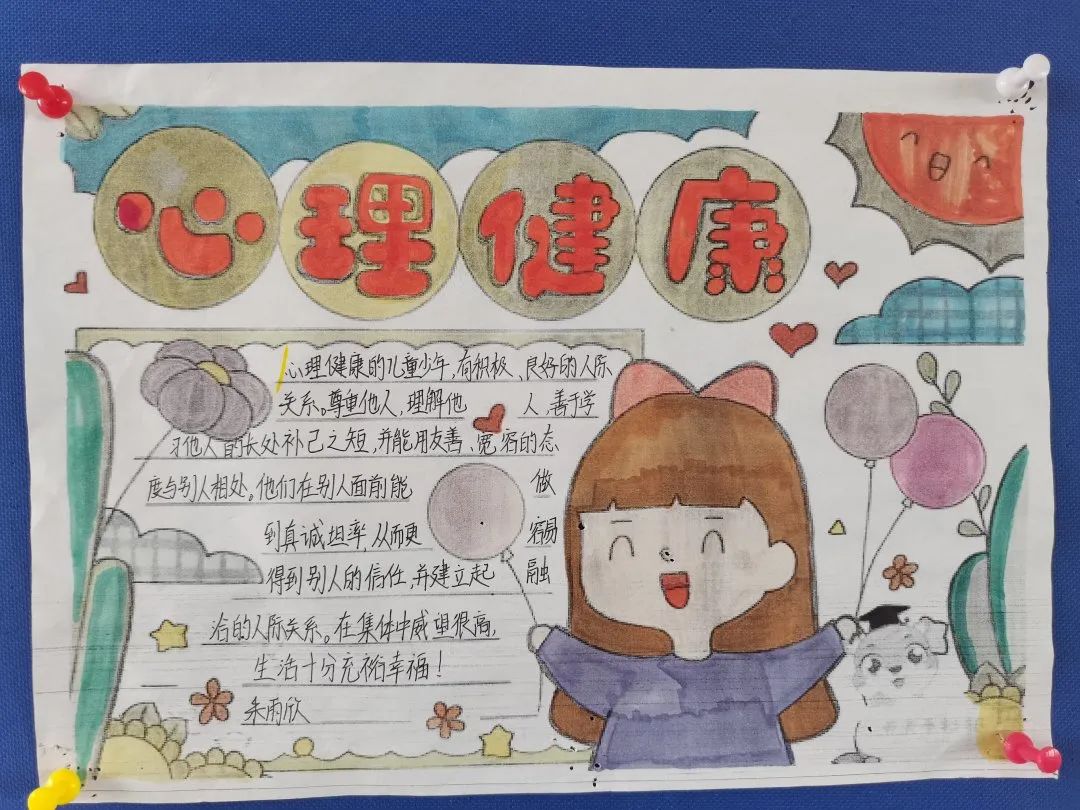 心理健康
心理健康的儿童少年，有积极、良好的人际
关系。尊重他人，理解他 人，善于学
习他人的长处补己之短，并能用友善、宽容的态
度与别人相处。他们在别人面前能 做
到真诚坦率，从而更 容易
得到别人的信任，并建立起 融
洽的人际关系。在集体中威望很高，
生活十分充裕幸福！
朱雨欣